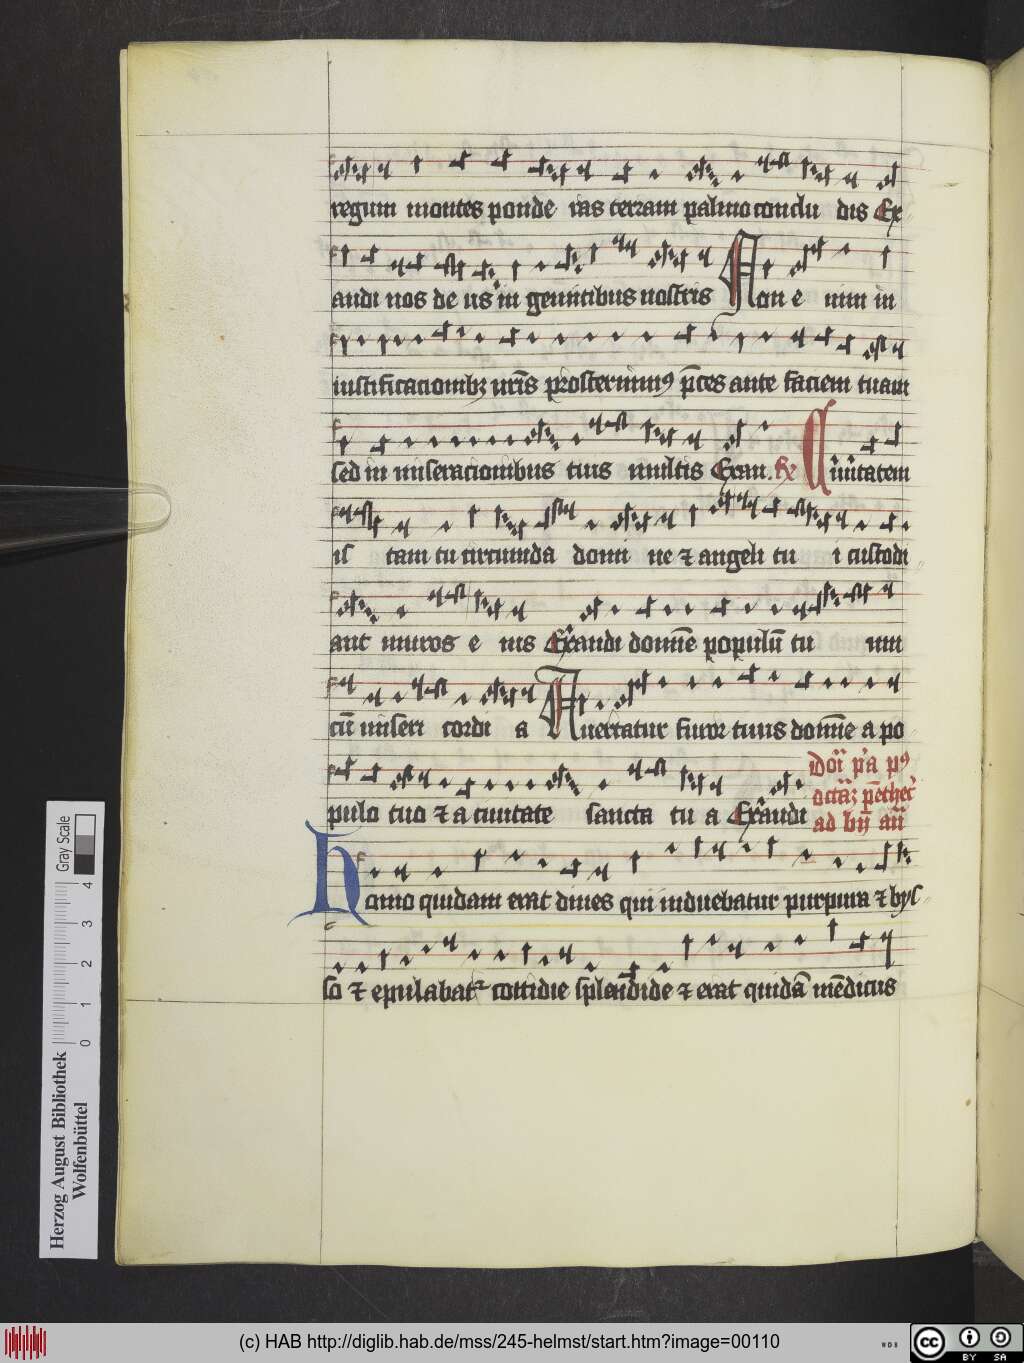 regum montes ponde ras terram palmo conclu dis Ex
audi nos de us in gemitibus nostris Non e nim in
iustificacionibꝫ nr̄is prosternimꝰ p̄ces ante faciem tuam
sed in miseracionibus tuis multis Exau. R̸
Ciuitatem
is tam tu circumda domi ne ⁊ angeli tu i custodi
ant muros e ius Exaudi domīe populū tu um
cū miseri cordi a Auertatur furor tuus domīe a po
pulo tuo ⁊ a ciuitate sancta tu a Exaudi
ad bn̄ an̄
Homo quidam erat diues qui induebatur purpura ⁊ byſ
so ⁊ epulabat᷑ cottidie splendide ⁊ erat quidā mēdicus
Herzog August Bibliothek
Wolfenbüttel
0 1 2 3 4
Gray Scale
(c) HAB http://diglib.hab.de/mss/245-helmst/start.htm?image=00110
WDB
cc BY SA